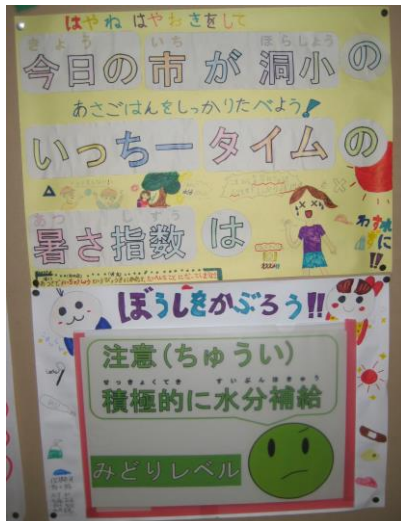 はやね はやおきをして
きょう いち ほらしょう
今日の市が洞小の
あさごはんをしっかりたべよう!
いっちータイムの
わすれずに!!
あつ しすう
暑さ指数は
ぼうしをかぶろう!!
注意(ちゅうい)
せっきょくてき すいぶんほきゅう
積極的に水分補給
みどりレベル